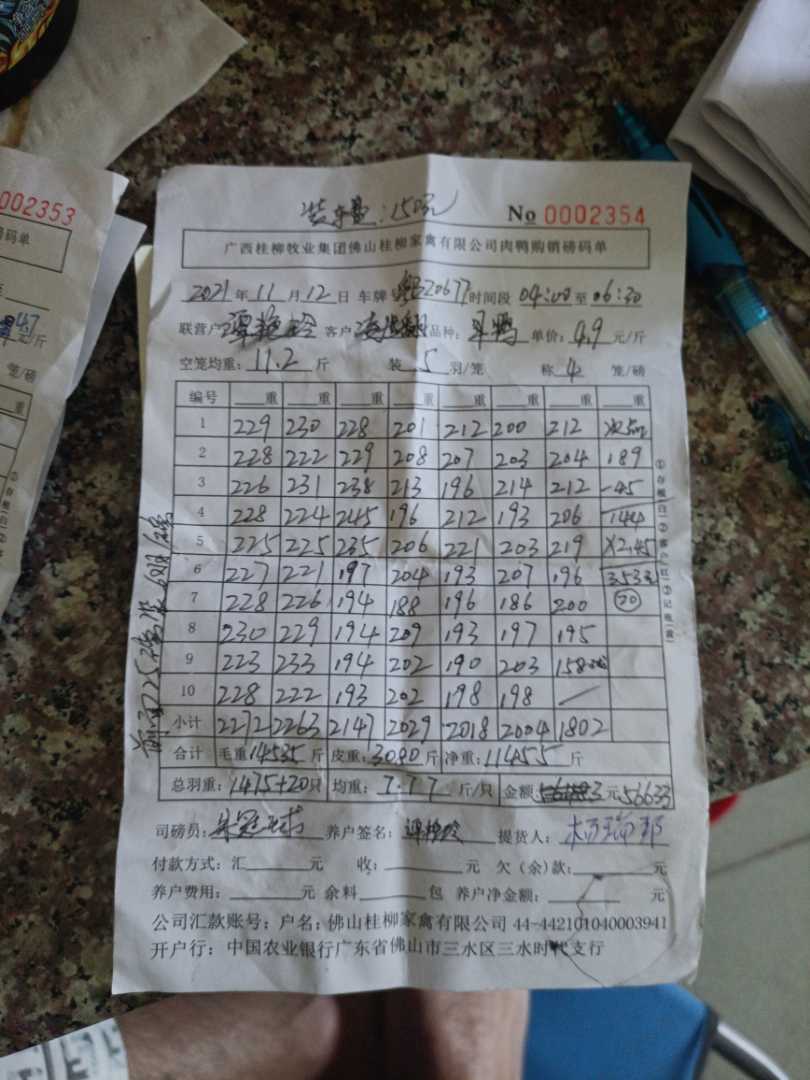 装车费:150元
No 0002354
广西桂柳牧业集团佛山桂柳家禽有限公司肉鸭购销磅码单
2021年11月12日 车牌 20677 时间段 04:00至06:30
联营户: 谭艳玲 客户: 品种: 单价:4.9元/斤
空笼均重:11.2斤 装5羽/笼 称4笼/磅
编号 重 重 重 重 重 重 重 重
1 229 230 228 201 212 200 212 次品
2 228 222 229 208 207 203 204 189
3 226 231 238 213 196 214 212 -45
4 228 224 245 196 212 193 206 144
5 225 225 235 206 221 203 219 X2.45
6 227 221 197 204 193 207 196 353元
7 228 226 194 188 196 186 200 20
8 230 229 194 209 193 197 195
9 223 233 194 202 190 203 158
10 228 222 193 202 198 198 —
小计 2272 2263 2147 2029 2018 2004 1802
合计 毛重:14535斤 皮重:3080斤 净重:11455斤
总羽重:1475+20只 均重:7.77斤/只 金额 元 56633
司磅员: 养户签名:谭艳玲 提货人:
付款方式:汇 元 收: 元 欠(余)款: 元
养户费用: 元 余料 包 养户净金额: 元
公司汇款账号:户名:佛山桂柳家禽有限公司 44-442101040003941
开户行:中国农业银行广东省佛山市三水区三水时代支行
①存根(白)②客户(红)③记账(黄)
前面25笼装6只/笼
0002353
磅码单
4.7
元/斤
笼/磅
重
①存根(白)②